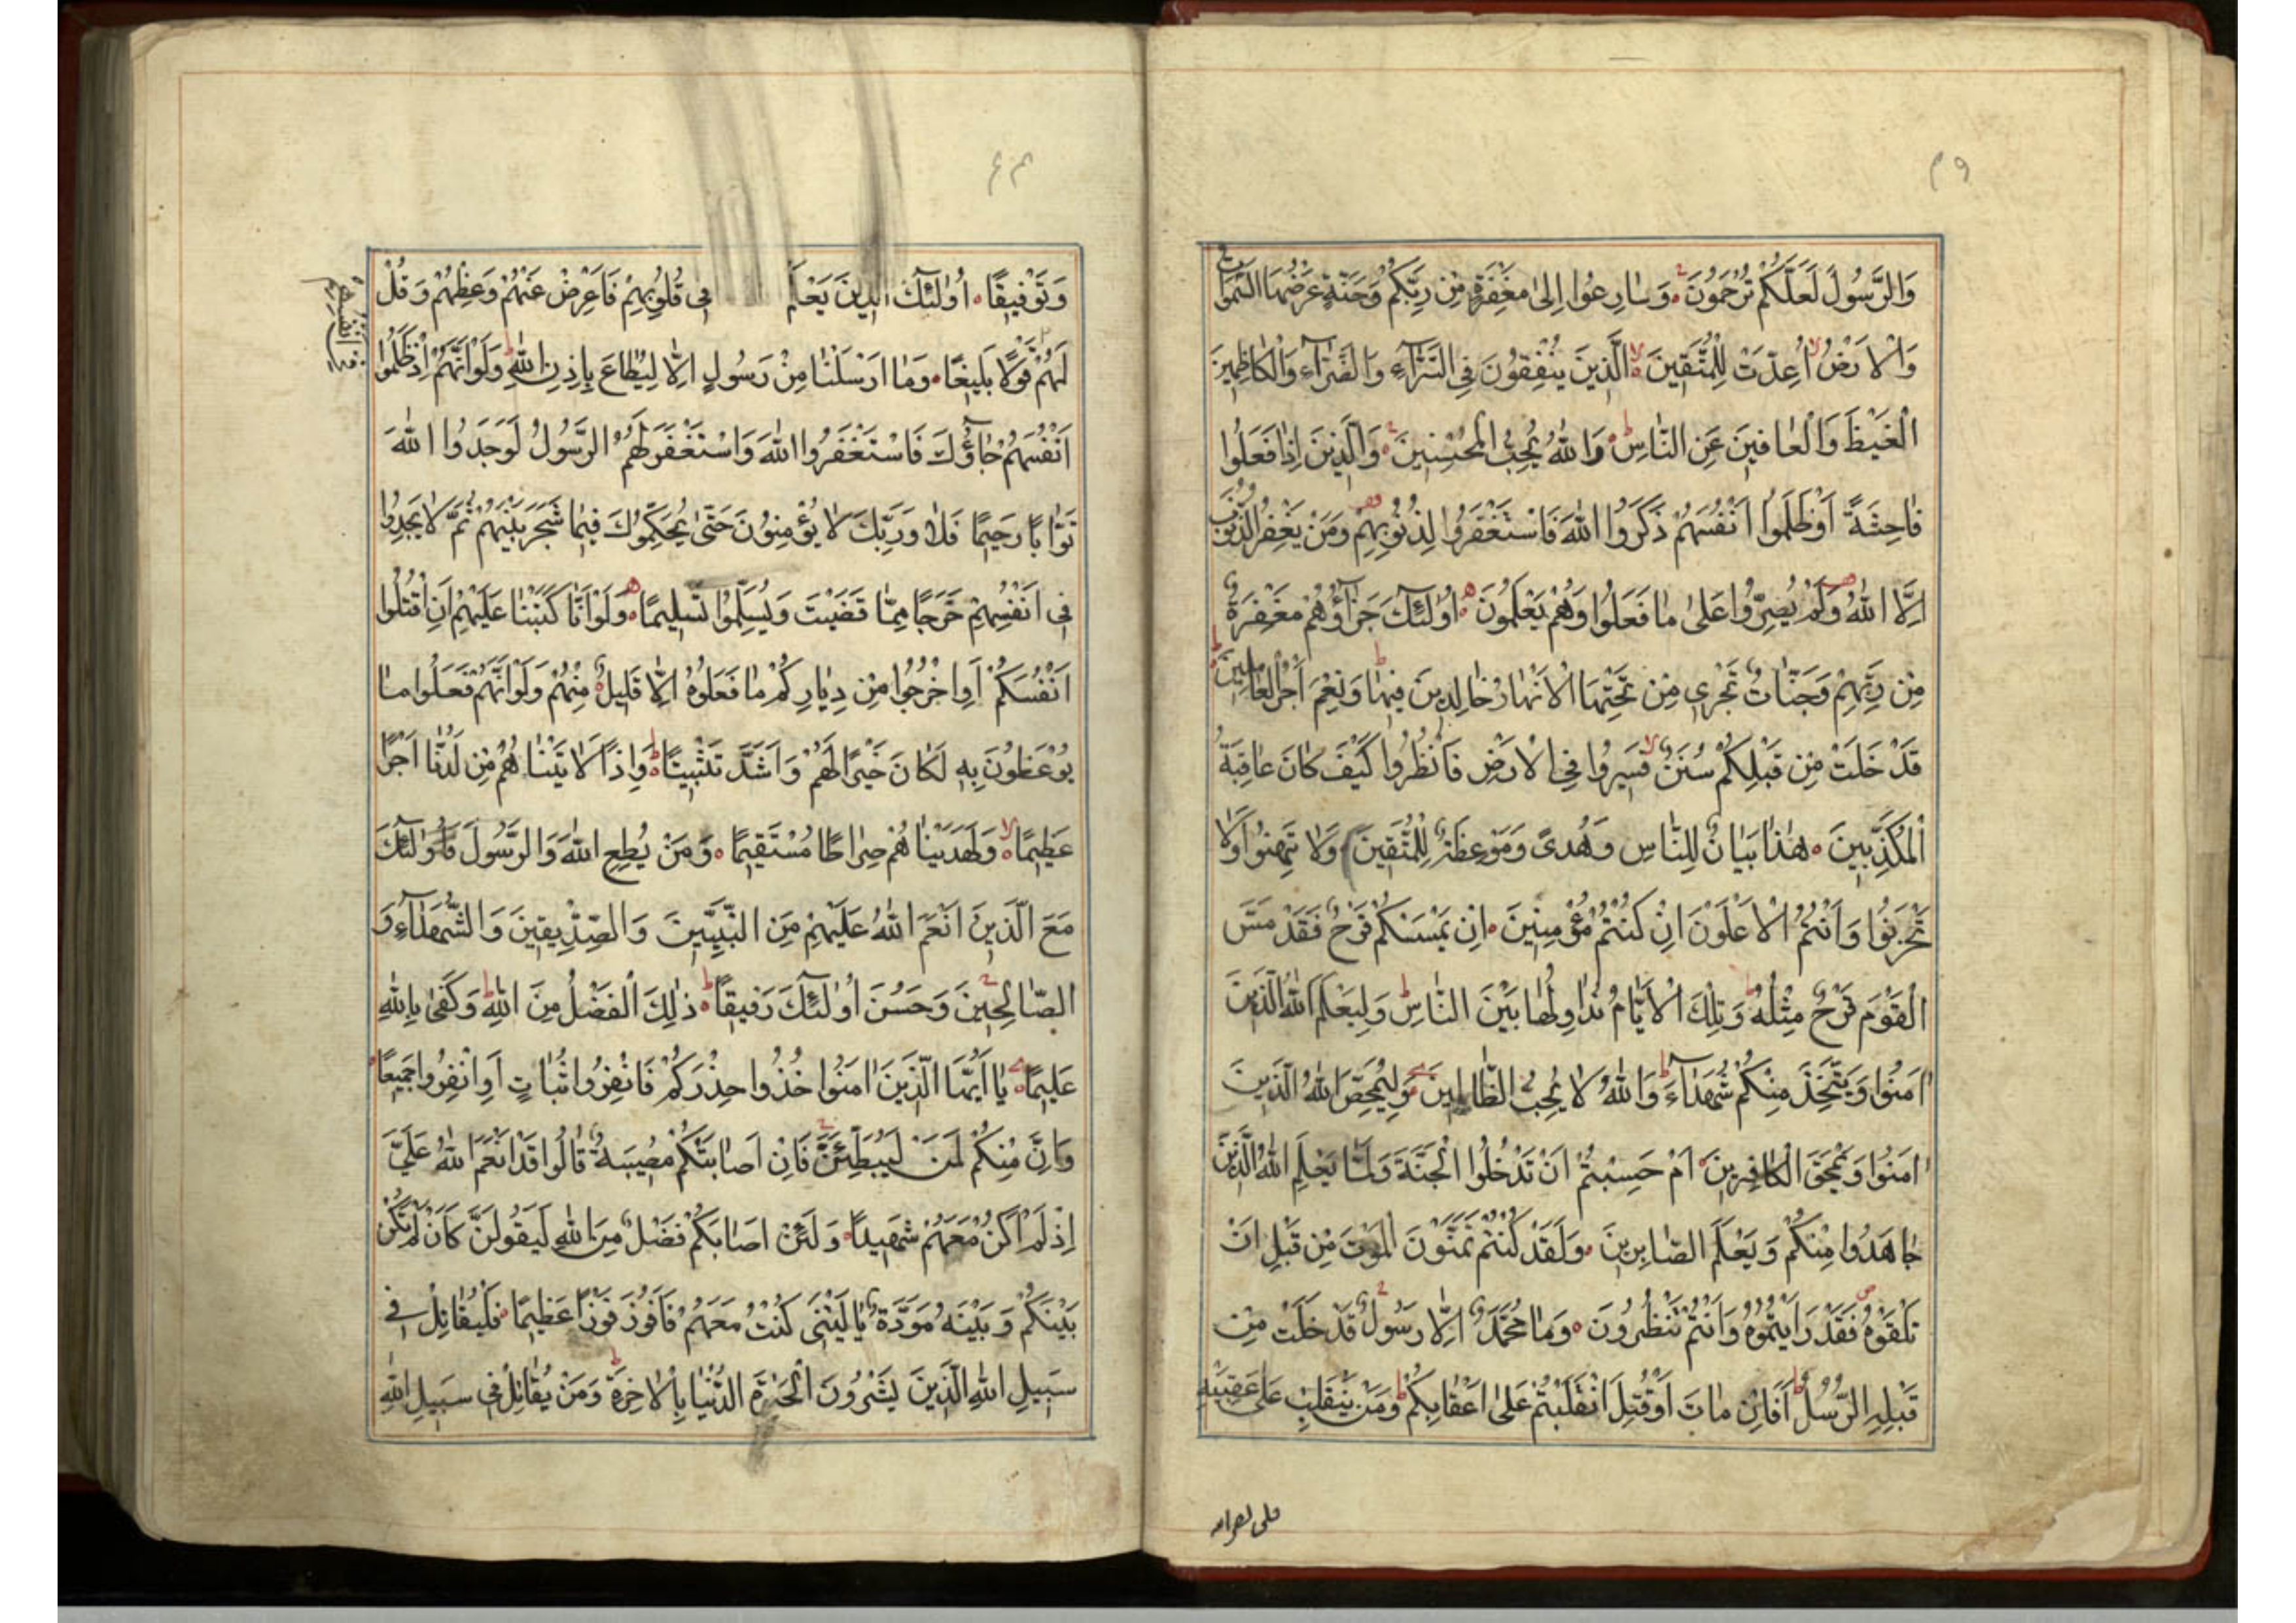 وَالرَّسُولَ لَعَلَّكُمْ تُرْحَمُونَ وَسَارِعُوا إِلَىٰ مَغْفِرَةٍ مِنْ رَبِّكُمْ وَجَنَّةٍ عَرْضُهَا السَّمٰوَاتُ
وَالْاَرْضُ اُعِدَّتْ لِلْمُتَّقِينَ الَّذِينَ يُنْفِقُونَ فِي السَّرَّآءِ وَالضَّرَّآءِ وَالْكَاظِمِينَ
الْغَيْظَ وَالْعَافِينَ عَنِ النَّاسِ وَاللّٰهُ يُحِبُّ الْمُحْسِنِينَ وَالَّذِينَ اِذَا فَعَلُوا
فَاحِشَةً اَوْ ظَلَمُوا اَنْفُسَهُمْ ذَكَرُوا اللّٰهَ فَاسْتَغْفَرُوا لِذُنُوبِهِمْ وَمَنْ يَغْفِرُ الذُّنُوبَ
اِلَّا اللّٰهُ وَلَمْ يُصِرُّوا عَلىٰ مَا فَعَلُوا وَهُمْ يَعْلَمُونَ اُولٰئِكَ جَزَآؤُهُمْ مَغْفِرَةٌ
مِنْ رَبِّهِمْ وَجَنَّاتٌ تَجْرِي مِنْ تَحْتِهَا الْاَنْهَارُ خَالِدِينَ فِيهَا وَنِعْمَ اَجْرُ الْعَامِلِينَ
قَدْ خَلَتْ مِنْ قَبْلِكُمْ سُنَنٌ فَسِيرُوا فِي الْاَرْضِ فَانْظُرُوا كَيْفَ كَانَ عَاقِبَةُ
الْمُكَذِّبِينَ هٰذَا بَيَانٌ لِلنَّاسِ وَهُدىً وَمَوْعِظَةٌ لِلْمُتَّقِينَ وَلَا تَهِنُوا وَلَا
تَحْزَنُوا وَاَنْتُمُ الْاَعْلَوْنَ اِنْ كُنْتُمْ مُؤْمِنِينَ اِنْ يَمْسَسْكُمْ قَرْحٌ فَقَدْ مَسَّ
الْقَوْمَ قَرْحٌ مِثْلُهُ وَتِلْكَ الْاَيَّامُ نُدَاوِلُهَا بَيْنَ النَّاسِ وَلِيَعْلَمَ اللّٰهُ الَّذِينَ
اٰمَنُوا وَيَتَّخِذَ مِنْكُمْ شُهَدَآءَ وَاللّٰهُ لَا يُحِبُّ الظَّالِمِينَ وَلِيُمَحِّصَ اللّٰهُ الَّذِينَ
اٰمَنُوا وَيَمْحَقَ الْكَافِرِينَ اَمْ حَسِبْتُمْ اَنْ تَدْخُلُوا الْجَنَّةَ وَلَمَّا يَعْلَمِ اللّٰهُ الَّذِينَ
جَاهَدُوا مِنْكُمْ وَيَعْلَمَ الصَّابِرِينَ وَلَقَدْ كُنْتُمْ تَمَنَّوْنَ الْمَوْتَ مِنْ قَبْلِ اَنْ
تَلْقَوْهُ فَقَدْ رَاَيْتُمُوهُ وَاَنْتُمْ تَنْظُرُونَ وَمَا مُحَمَّدٌ اِلَّا رَسُولٌ قَدْ خَلَتْ مِنْ
قَبْلِهِ الرُّسُلُ اَفَائِنْ مَاتَ اَوْ قُتِلَ انْقَلَبْتُمْ عَلىٰ اَعْقَابِكُمْ وَمَنْ يَنْقَلِبْ عَلىٰ عَقِبَيْهِ
وَتَوْفِيقًا اُولٰئِكَ الَّذِينَ يَعْلَمُ فِي قُلُوبِهِمْ فَاَعْرِضْ عَنْهُمْ وَعِظْهُمْ وَقُلْ
لَهُمْ قَوْلًا بَلِيغًا وَمَا اَرْسَلْنَا مِنْ رَسُولٍ اِلَّا لِيُطَاعَ بِاِذْنِ اللّٰهِ وَلَوْ اَنَّهُمْ اِذْ ظَلَمُوا
اَنْفُسَهُمْ جَآؤُكَ فَاسْتَغْفَرُوا اللّٰهَ وَاسْتَغْفَرَ لَهُمُ الرَّسُولُ لَوَجَدُوا اللّٰهَ
تَوَّابًا رَحِيمًا فَلَا وَرَبِّكَ لَا يُؤْمِنُونَ حَتّىٰ يُحَكِّمُوكَ فِيمَا شَجَرَ بَيْنَهُمْ ثُمَّ لَا يَجِدُوا
فِي اَنْفُسِهِمْ حَرَجًا مِمَّا قَضَيْتَ وَيُسَلِّمُوا تَسْلِيمًا وَلَوْ اَنَّا كَتَبْنَا عَلَيْهِمْ اَنِ اقْتُلُوا
اَنْفُسَكُمْ اَوِ اخْرُجُوا مِنْ دِيَارِكُمْ مَا فَعَلُوهُ اِلَّا قَلِيلٌ مِنْهُمْ وَلَوْ اَنَّهُمْ فَعَلُوا مَا
يُوعَظُونَ بِهِ لَكَانَ خَيْرًا لَهُمْ وَاَشَدَّ تَثْبِيتًا وَاِذًا لَاٰتَيْنَاهُمْ مِنْ لَدُنَّا اَجْرًا
عَظِيمًا وَلَهَدَيْنَاهُمْ صِرَاطًا مُسْتَقِيمًا وَمَنْ يُطِعِ اللّٰهَ وَالرَّسُولَ فَاُولٰئِكَ
مَعَ الَّذِينَ اَنْعَمَ اللّٰهُ عَلَيْهِمْ مِنَ النَّبِيِّينَ وَالصِّدِّيقِينَ وَالشُّهَدَآءِ وَ
الصَّالِحِينَ وَحَسُنَ اُولٰئِكَ رَفِيقًا ذٰلِكَ الْفَضْلُ مِنَ اللّٰهِ وَكَفىٰ بِاللّٰهِ
عَلِيمًا يَا اَيُّهَا الَّذِينَ اٰمَنُوا خُذُوا حِذْرَكُمْ فَانْفِرُوا ثُبَاتٍ اَوِ انْفِرُوا جَمِيعًا
وَاِنَّ مِنْكُمْ لَمَنْ لَيُبَطِّئَنَّ فَاِنْ اَصَابَتْكُمْ مُصِيبَةٌ قَالُوا قَدْ اَنْعَمَ اللّٰهُ عَلَيَّ
اِذْ لَمْ اَكُنْ مَعَهُمْ شَهِيدًا وَلَئِنْ اَصَابَكُمْ فَضْلٌ مِنَ اللّٰهِ لَيَقُولَنَّ كَاَنْ لَمْ تَكُنْ
بَيْنَكُمْ وَبَيْنَهُ مَوَدَّةٌ يَا لَيْتَنِي كُنْتُ مَعَهُمْ فَاَفُوزَ فَوْزًا عَظِيمًا فَلْيُقَاتِلْ فِي
سَبِيلِ اللّٰهِ الَّذِينَ يَشْرُونَ الْحَيٰوةَ الدُّنْيَا بِالْاٰخِرَةِ وَمَنْ يُقَاتِلْ فِي سَبِيلِ اللّٰهِ